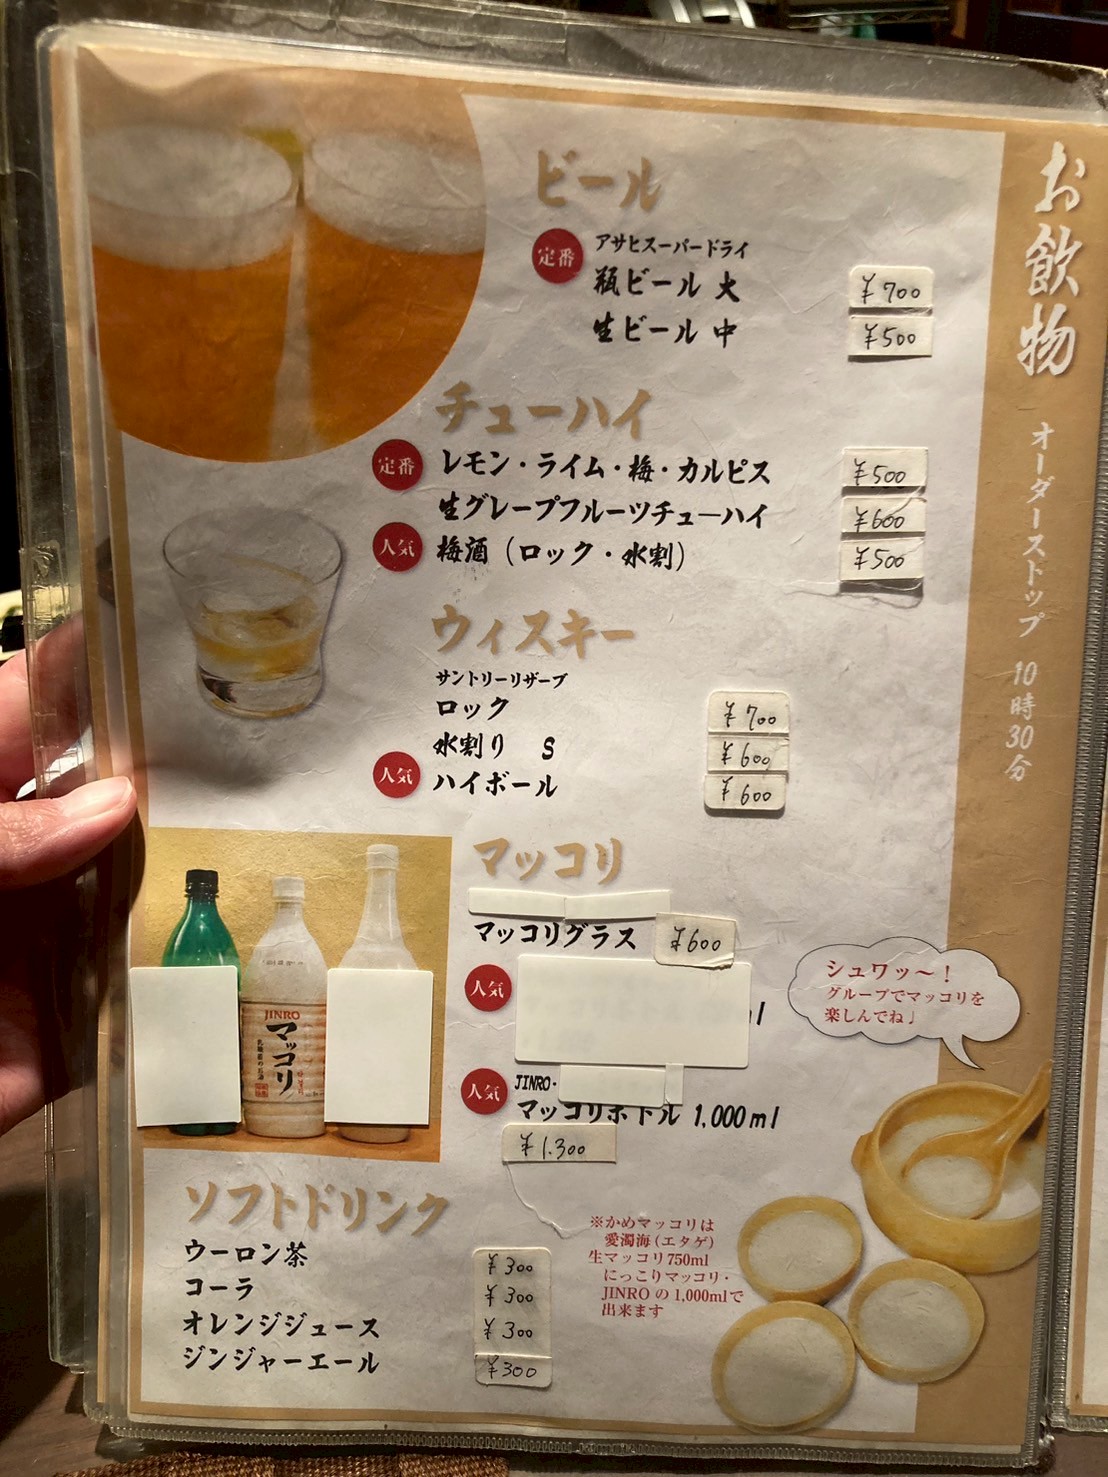 お飲物
オーダーストップ 10時30分
ビール
定番
アサヒスーパードライ
瓶ビール 大 ¥700
生ビール 中 ¥500
チューハイ
定番 レモン・ライム・梅・カルピス ¥500
生グレープフルーツチューハイ ¥600
人気 梅酒（ロック・水割） ¥500
ウィスキー
サントリーリザーブ
ロック ¥700
水割り S ¥600
人気 ハイボール ¥600
マッコリ
マッコリグラス ¥600
人気
ml
人気 JINRO・
マッコリボトル 1,000ml
¥1,300
シュワッ〜！
グループでマッコリを
楽しんでね♩
JINRO
マッコリ
ソフトドリンク
ウーロン茶 ¥300
コーラ ¥300
オレンジジュース ¥300
ジンジャーエール ¥300
※かめマッコリは
愛濁海(エタゲ)
生マッコリ750ml
にっこりマッコリ・
JINROの1,000mlで
出来ます